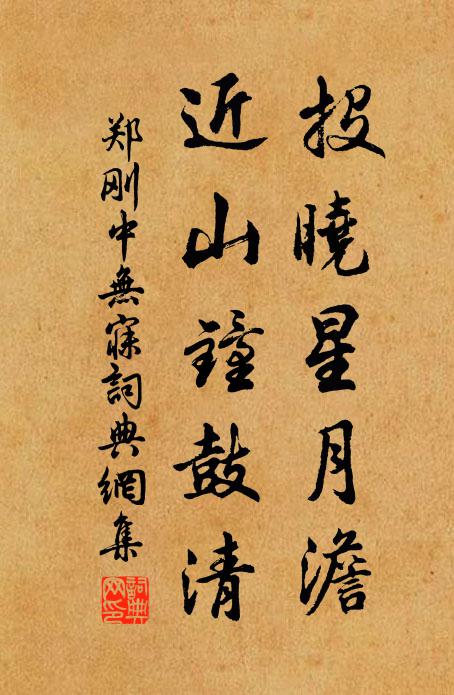 投曉星月澹
近山鐘鼓清
郑刚中無寐詞典網集
詞典網印